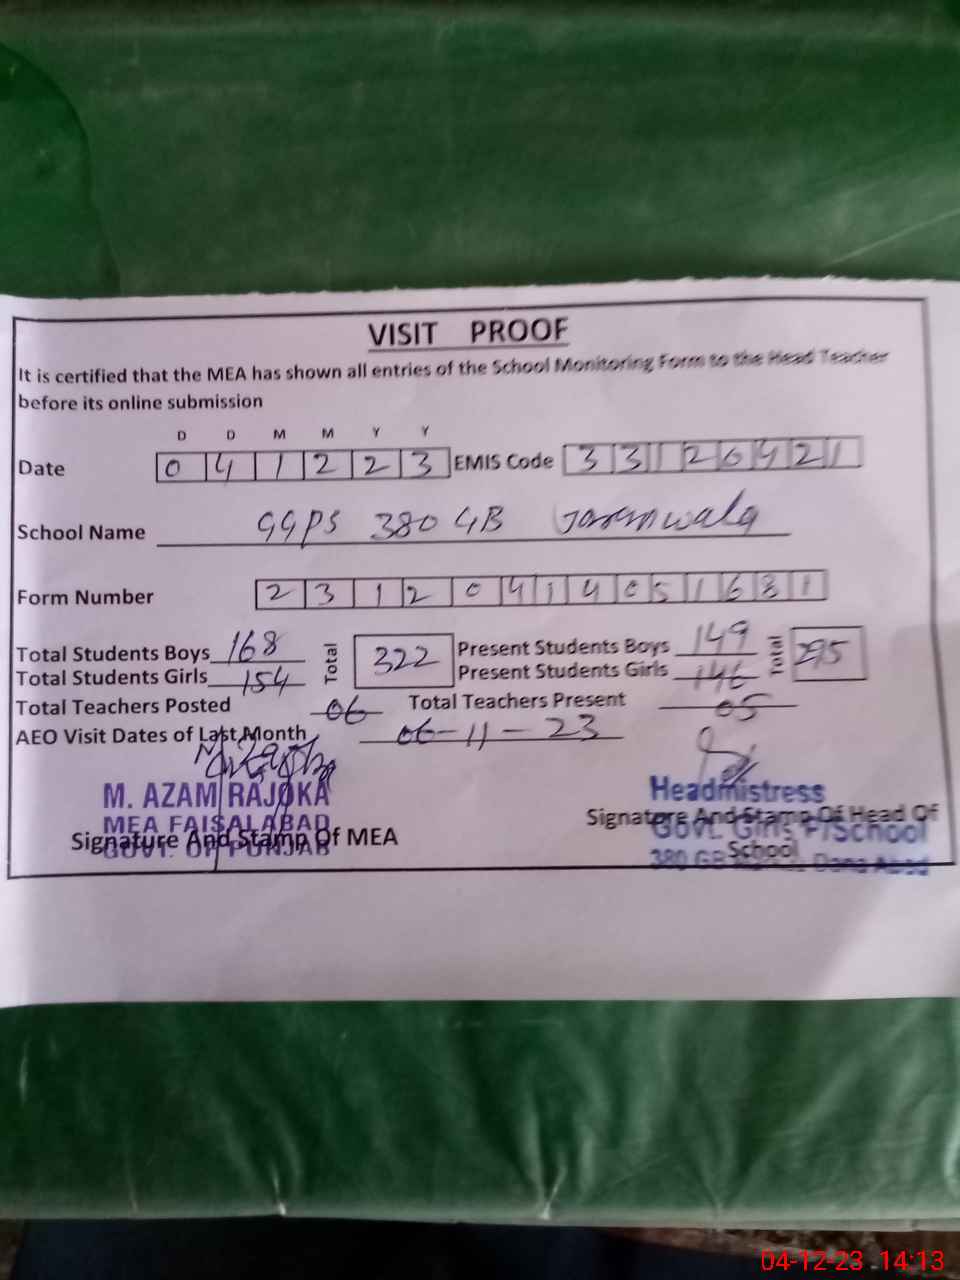 VISIT PROOF
It is certified that the MEA has shown all entries of the School Monitoring Form to the Head Teacher
before its online submission
D D M M Y Y
Date 0 4 1 2 2 3 EMIS Code 3 3 1 2 0 4 2 1
School Name GGPS 380 GB Jaranwala
Form Number 2 3 1 2 0 4 1 4 0 5 1 6 3 1
Total Students Boys 168 Total 322 Present Students Boys 149 Total 295
Total Students Girls 154 Present Students Girls 146
Total Teachers Posted 06 Total Teachers Present 05
AEO Visit Dates of Last Month 06-11-23
M. AZAM RAJOKA
MEA FAISALABAD
GOVT. OF PUNJAB
Signature And Stamp Of MEA
Headmistress
Signature And Stamp Of Head Of
Govt. Girls P/School
School
380 GB
04-12-23 14:13